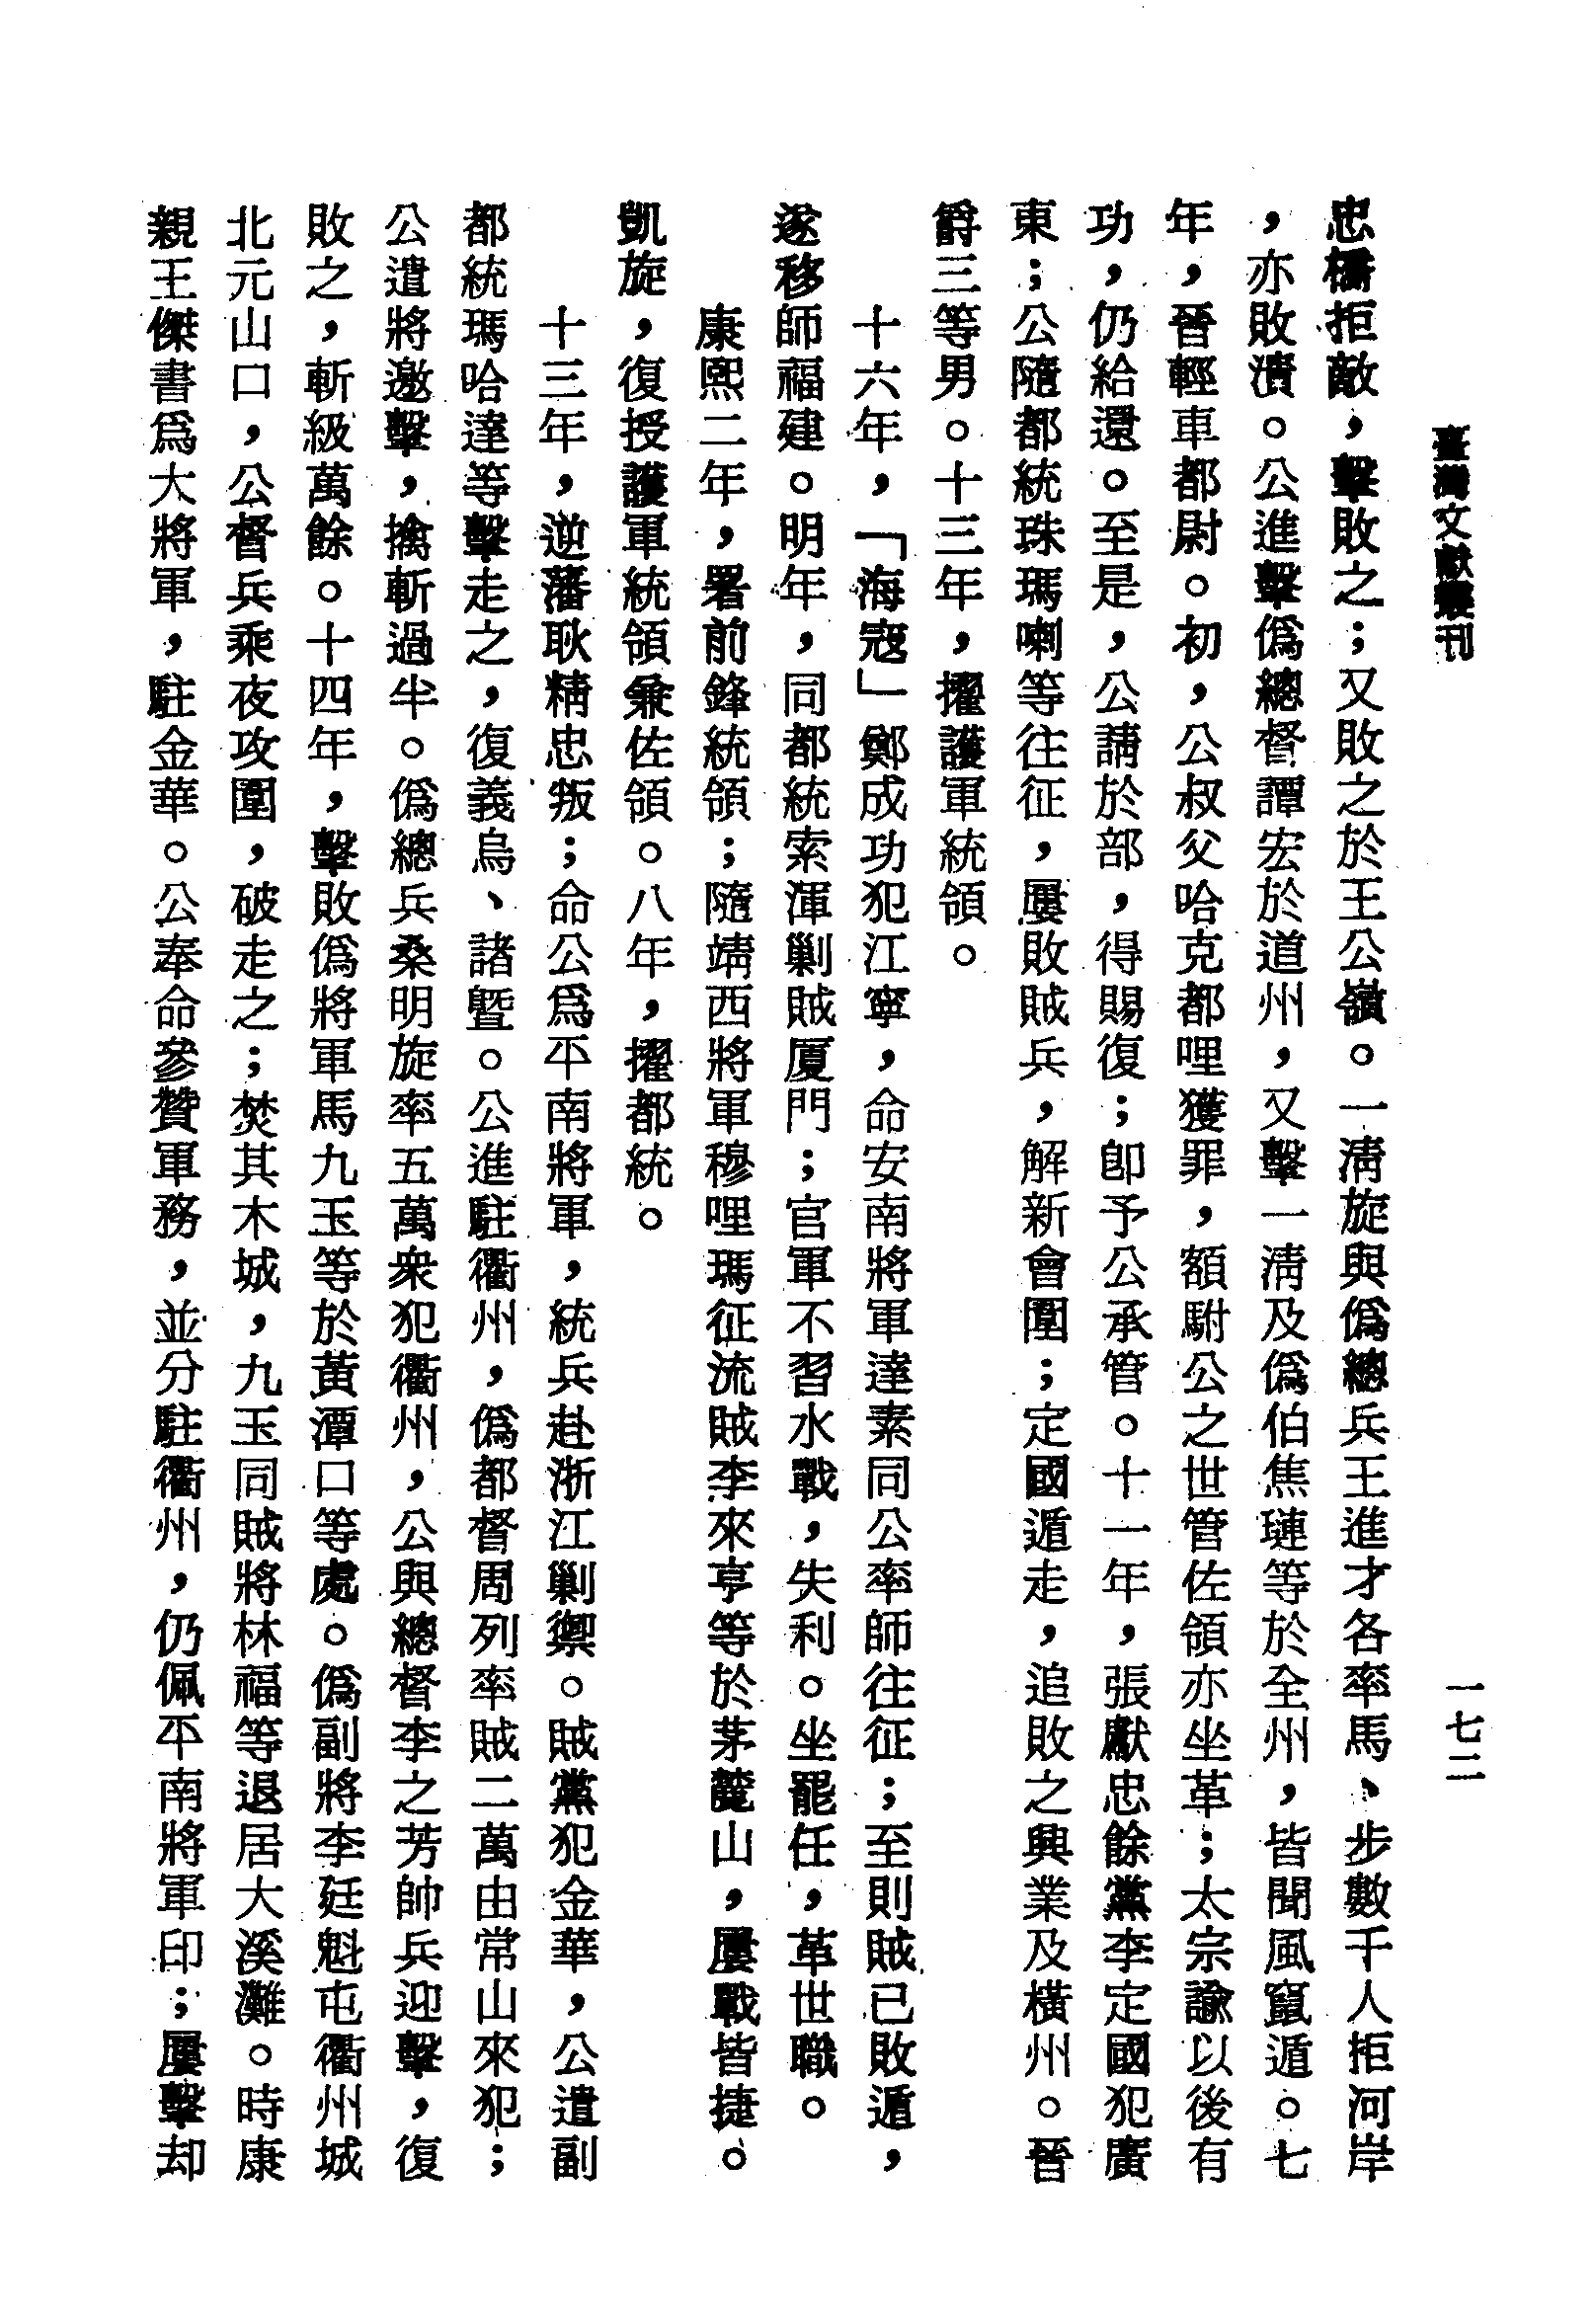 臺灣文獻叢刊
一七二
忠橋拒敵，擊敗之；又敗之於王公嶺。一淸旋與僞總兵王進才各率馬、步數千人拒河岸
，亦敗潰。公進擊僞總督譚宏於道州，又擊一淸及僞伯焦璉等於全州，皆聞風竄遁。七
年，晉輕車都尉。初，公叔父哈克都哩獲罪，額駙公之世管佐領亦坐革；太宗諭以後有
功，仍給還。至是，公請於部，得賜復；卽予公承管。十一年，張獻忠餘黨李定國犯廣
東；公隨都統珠瑪喇等往征，屢敗賊兵，解新會圍；定國遁走，追敗之興業及橫州。晉
爵三等男。十三年，擢護軍統領。
十六年，「海寇」鄭成功犯江寧，命安南將軍達素同公率師往征；至則賊已敗遁，
遂移師福建。明年，同都統索渾剿賊厦門；官軍不習水戰，失利。坐罷任，革世職。
康熙二年，署前鋒統領；隨靖西將軍穆哩瑪征流賊李來亨等於茅麓山，屢戰皆捷。
凱旋，復授護軍統領兼佐領。八年，擢都統。
十三年，逆藩耿精忠叛；命公爲平南將軍，統兵赴浙江剿禦。賊黨犯金華，公遣副
都統瑪哈達等擊走之，復義烏、諸暨。公進駐衢州，僞都督周列率賊二萬由常山來犯；
公遣將邀擊，擒斬過半。僞總兵桑明旋率五萬衆犯衢州，公與總督李之芳帥兵迎擊，復
敗之，斬級萬餘。十四年，擊敗僞將軍馬九玉等於黃潭口等處。僞副將李廷魁屯衢州城
北元山口，公督兵乘夜攻圍，破走之；焚其木城，九玉同賊將林福等退居大溪灘。時康
親王傑書爲大將軍，駐金華。公奉命參贊軍務，並分駐衢州，仍佩平南將軍印；屢擊却